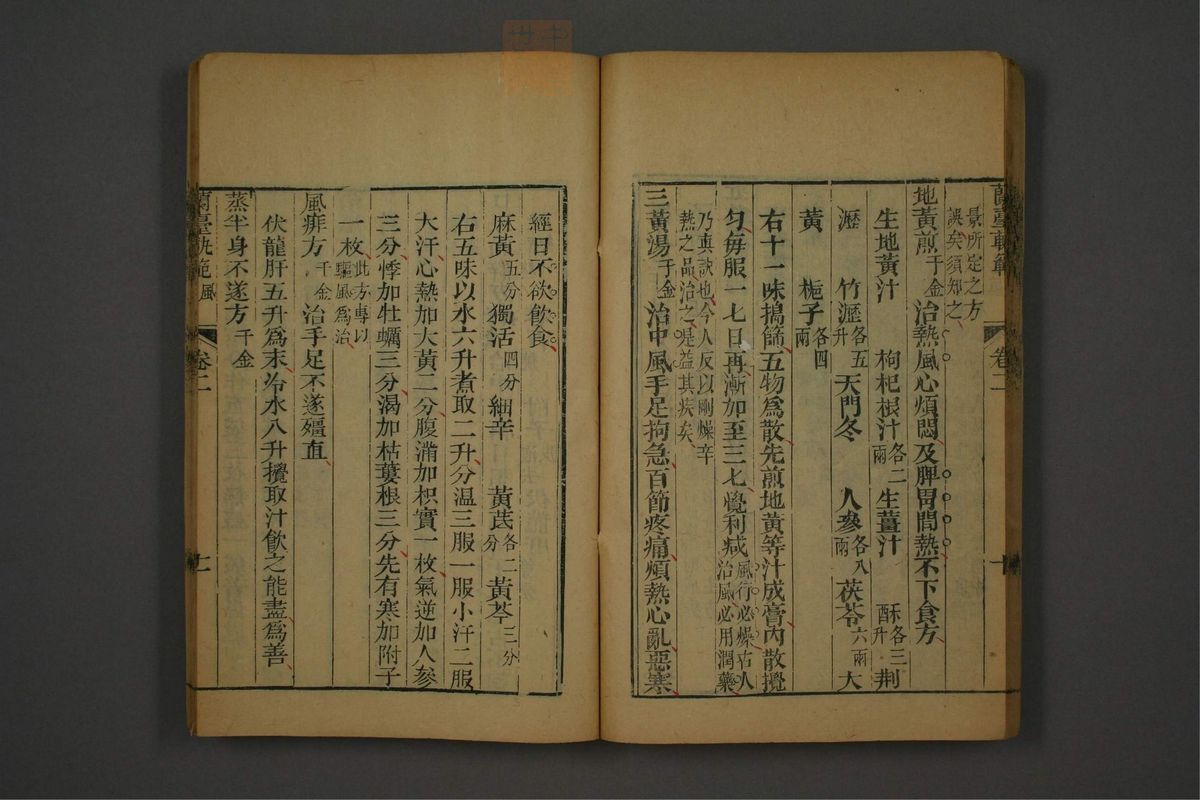 蘭臺軌範
卷二
十
景所定之方
誤矣須知之
地黃煎千金治熱風心煩悶及脾胃間熱不下食方
生地黃汁 枸杞根汁各二兩 生薑汁 酥各三升 荆
瀝 竹瀝各五升 天門冬 人參各八兩 茯苓六兩 大
黃 梔子各四兩
右十一味搗篩五物爲散先煎地黃等汁成膏內散攪
勻每服一七日再漸加至三七覺利減風行必燥古人治風必用潤藥
乃眞訣也今人反以剛燥辛
熱之品治之是益其疾矣
三黃湯千金治中風手足拘急百節疼痛煩熱心亂惡寒
經日不欲飮食
麻黃五分 獨活四分 細辛 黃芪各二分 黃芩三分
右五味以水六升煮取二升分温三服一服小汗二服
大汗心熱加大黃二分腹滿加枳實一枚氣逆加人參
三分悸加牡蠣三分渴加栝蔞根三分先有寒加附子
一枚此方專以驅風爲治
風痱方千金治手足不遂殭直
伏龍肝五升爲末冷水八升攪取汁飮之能盡爲善
蒸半身不遂方千金
蘭臺軌範 風
卷二